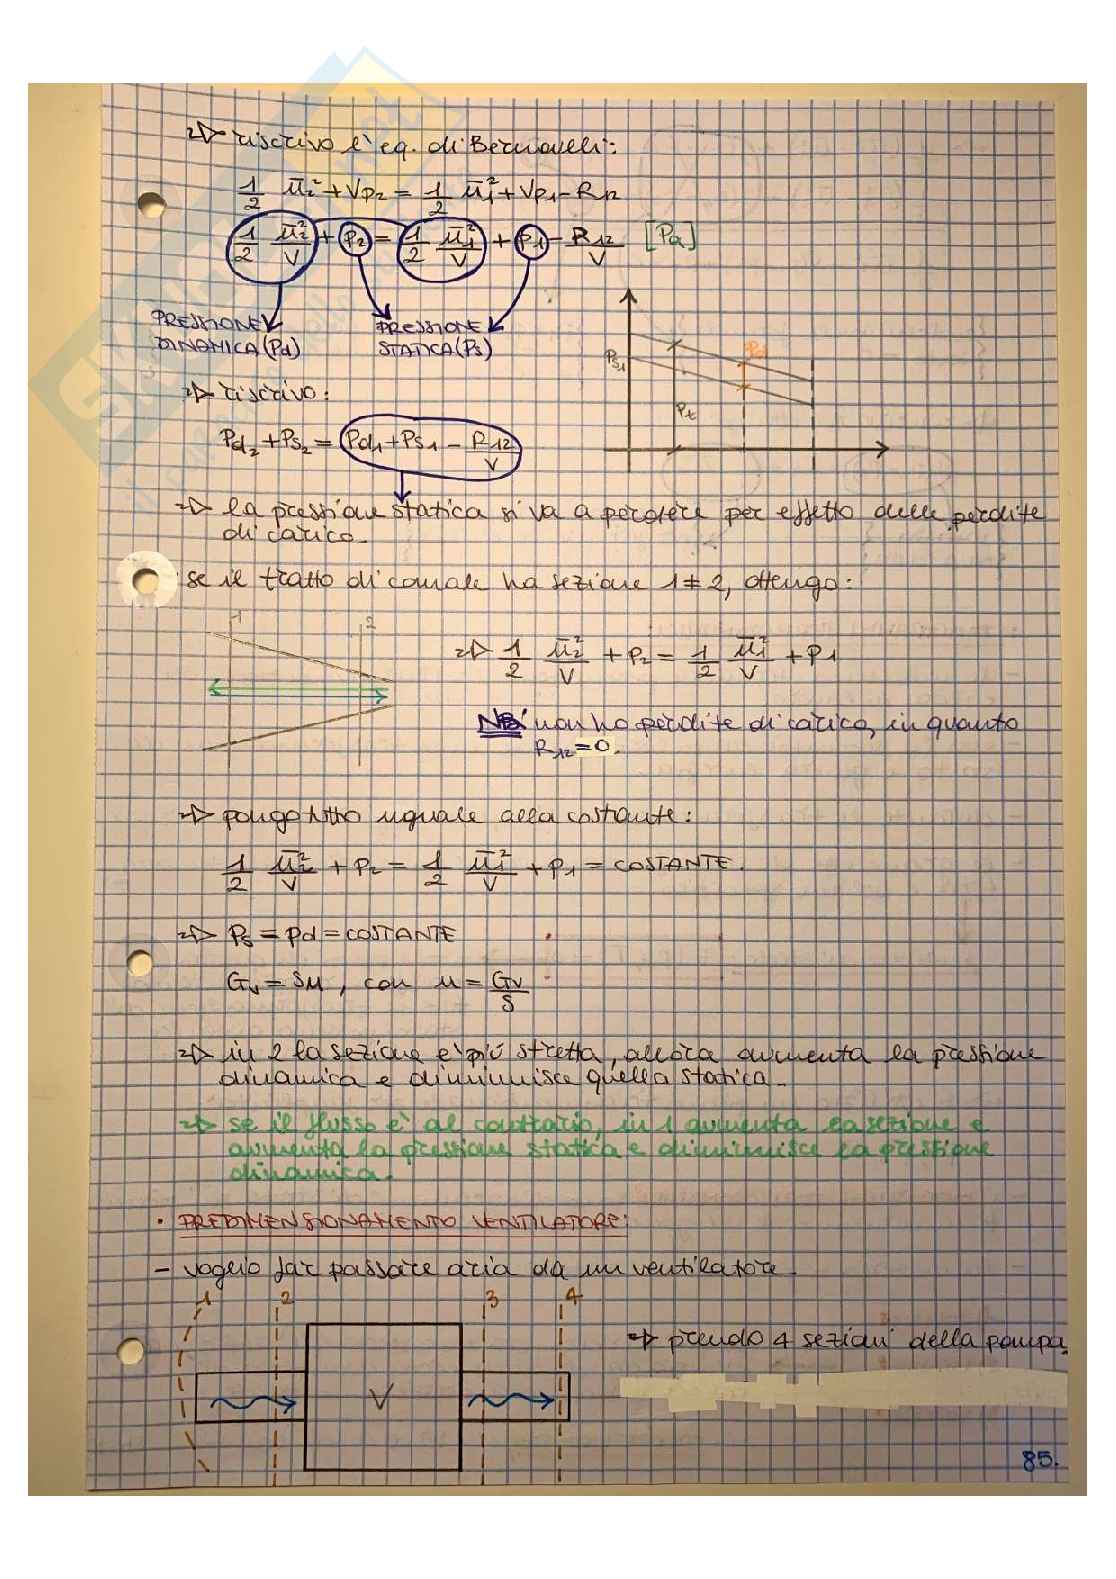 => riscrivo l'eq. di Bernoulli:
1/2 ū₂² + Vp₂ = 1/2 ū₁² + Vp₁ - R₁₂
1/2 ū₂²/V + p₂ = 1/2 ū₁²/V + p₁ - R₁₂/V [Pa]
PRESSIONE DINAMICA (Pd)
PRESSIONE STATICA (Ps)
Ps₁
Pd
Pt
=> riscrivo:
Pd₂ + Ps₂ = Pd₁ + Ps₁ - R₁₂/V
=> la pressione statica si va a perdere per effetto delle perdite
di carico.
se il tratto di canale ha sezione 1 ≠ 2, ottengo:
1
2
=> 1/2 ū₂²/V + p₂ = 1/2 ū₁²/V + p₁
NB: non ho perdite di carico, in quanto
R₁₂ = 0.
=> pongo tutto uguale alla costante:
1/2 ū₂²/V + p₂ = 1/2 ū₁²/V + p₁ = COSTANTE.
=> Ps = pd = COSTANTE
Gv = Su, con u = Gv/S
=> in 2 la sezione è più stretta, allora aumenta la pressione
dinamica e diminuisce quella statica.
=> se il flusso è al contrario, in 1 aumenta la sezione e
aumenta la pressione statica e diminuisce la pressione
dinamica.
• PREDIMENSIONAMENTO VENTILATORE:
- voglio far passare aria da un ventilatore.
1 2 3 4
=> prendo 4 sezioni della pompa.
V
85.